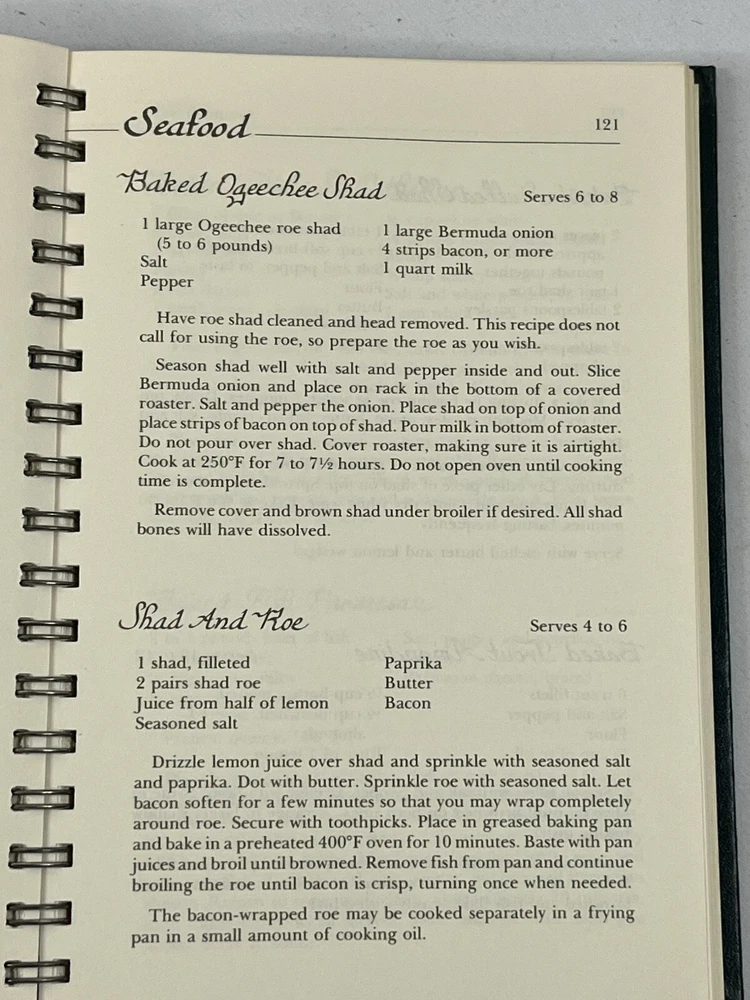 Seafood 121
Baked Ogeechee Shad Serves 6 to 8
1 large Ogeechee roe shad
(5 to 6 pounds)
Salt
Pepper
1 large Bermuda onion
4 strips bacon, or more
1 quart milk
Have roe shad cleaned and head removed. This recipe does not
call for using the roe, so prepare the roe as you wish.
Season shad well with salt and pepper inside and out. Slice
Bermuda onion and place on rack in the bottom of a covered
roaster. Salt and pepper the onion. Place shad on top of onion and
place strips of bacon on top of shad. Pour milk in bottom of roaster.
Do not pour over shad. Cover roaster, making sure it is airtight.
Cook at 250°F for 7 to 7½ hours. Do not open oven until cooking
time is complete.
Remove cover and brown shad under broiler if desired. All shad
bones will have dissolved.
Shad And Roe Serves 4 to 6
1 shad, filleted
2 pairs shad roe
Juice from half of lemon
Seasoned salt
Paprika
Butter
Bacon
Drizzle lemon juice over shad and sprinkle with seasoned salt
and paprika. Dot with butter. Sprinkle roe with seasoned salt. Let
bacon soften for a few minutes so that you may wrap completely
around roe. Secure with toothpicks. Place in greased baking pan
and bake in a preheated 400°F oven for 10 minutes. Baste with pan
juices and broil until browned. Remove fish from pan and continue
broiling the roe until bacon is crisp, turning once when needed.
The bacon-wrapped roe may be cooked separately in a frying
pan in a small amount of cooking oil.